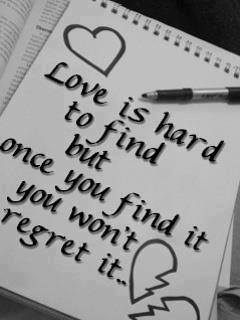 Love is hard
to find
but
once you find it
you won't
regret it..